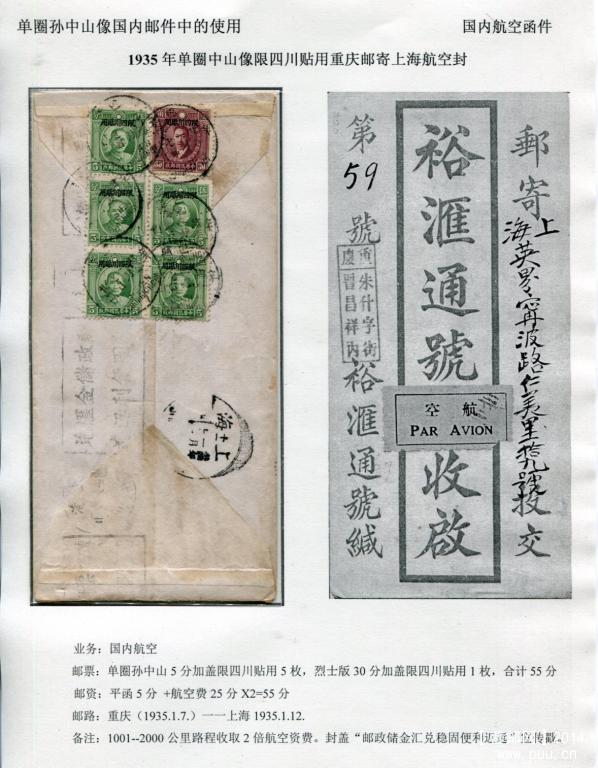 单圈孙中山像国内邮件中的使用
国内航空函件
1935 年单圈中山像限四川贴用重庆邮寄上海航空封
郵寄
上海英界寗波路仁美里
投交
裕滙通號收啟
航空
PAR AVION
第
59
號
重慶
朱什字街
晋昌祥内
裕滙通號緘
上海
业务：国内航空
邮票：单圈孙中山 5 分加盖限四川贴用 5 枚，烈士版 30 分加盖限四川贴用 1 枚，合计 55 分
邮资：平函 5 分 +航空费 25 分 X2=55 分
邮路：重庆（1935.1.7.）一一上海 1935.1.12.
备注：1001--2000 公里路程收取 2 倍航空资费。封盖“邮政储金汇兑稳固便利迅速”宣传戳。